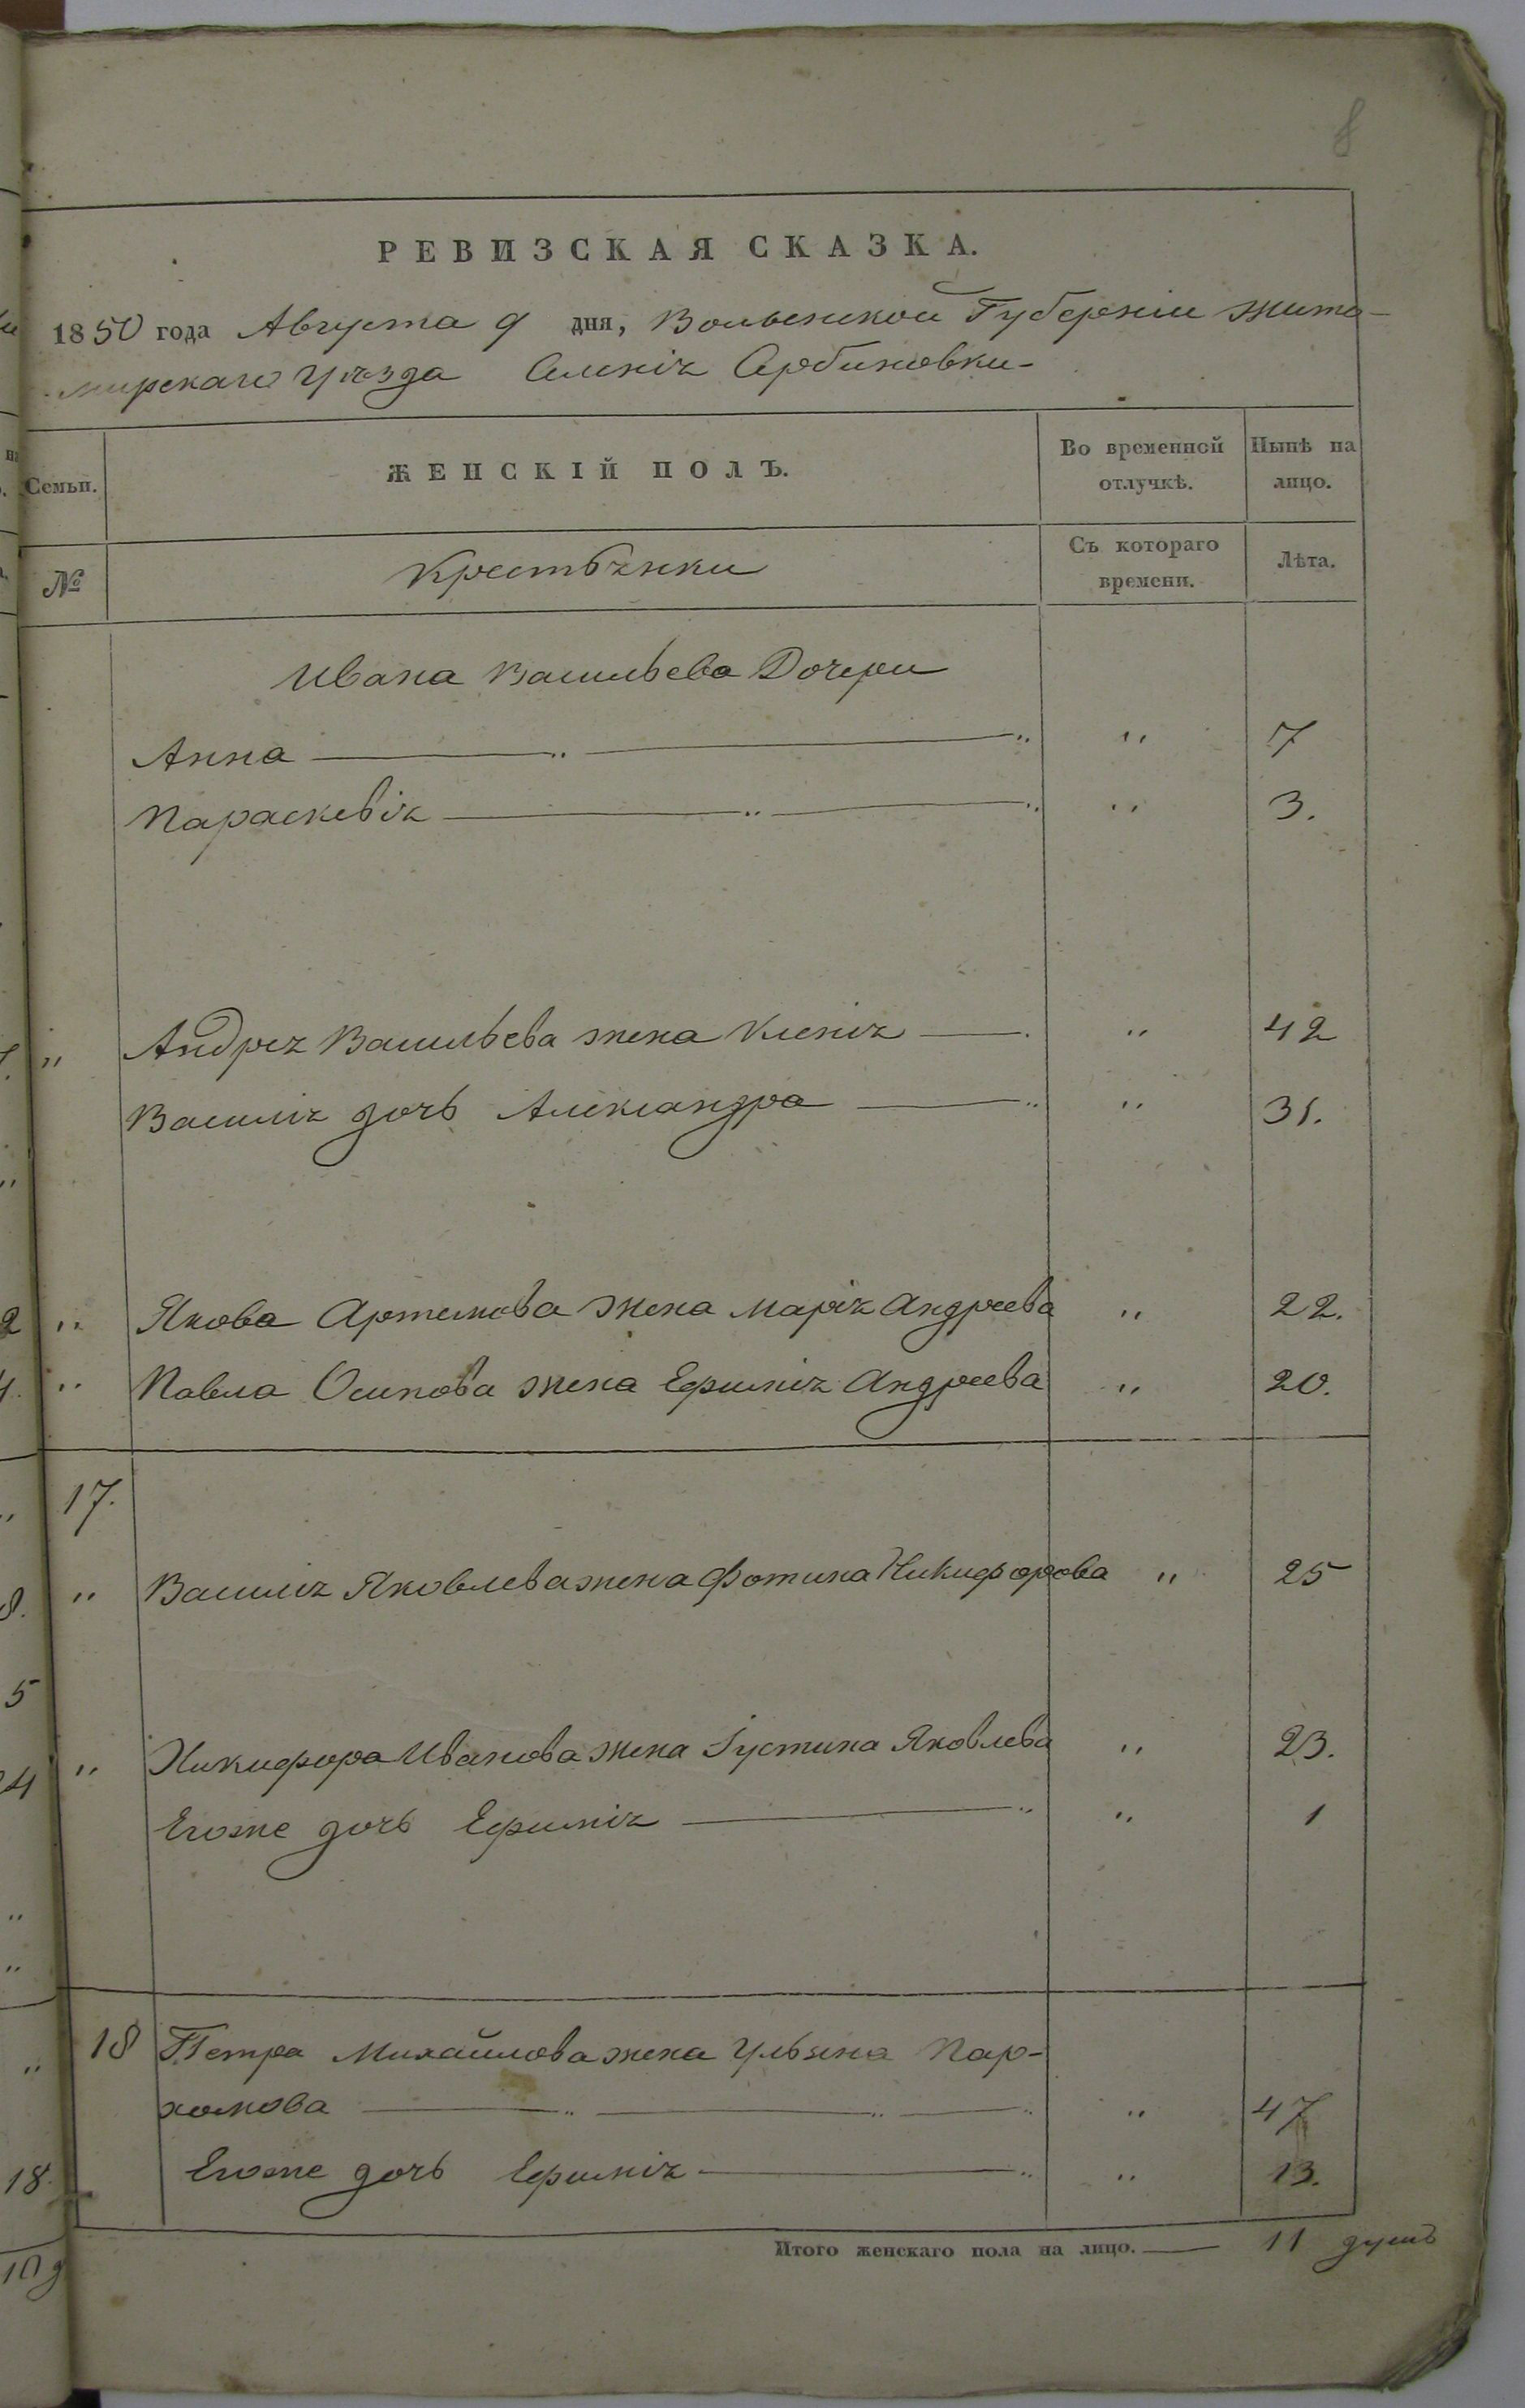 8
РЕВИЗСКАЯ СКАЗКА.
1850 года Августа 9 дня, Волынской Губерніи Жито-
мирскаго Уѣзда Селенія Сербиновки-
Семьи.
ЖЕНСКІЙ ПОЛЪ.
Во временной отлучкѣ.
Нынѣ на лицо.
№
Крестьянки
Съ котораго времени.
Лѣта.
Ивана Васильева Дочери
Анна " 7
Параскевія " 3.
" Андрея Васильева жена Ксенія " 42
Василія дочь Александра " 31.
" Якова Артемова жена Марія Андреева " 22.
" Павла Осипова жена Ефимія Андреева " 20.
17.
" Василія Яковлева жена Фотина Никифорова " 25
" Никифора Иванова жена Іустина Яковлева " 23.
Егоже дочь Ефимія " 1
18 Петра Михайлова жена Ульяна Пар-
хомова " 47
Егоже дочь Ефимія " 13.
Итого женскаго пола на лицо. 11 душъ